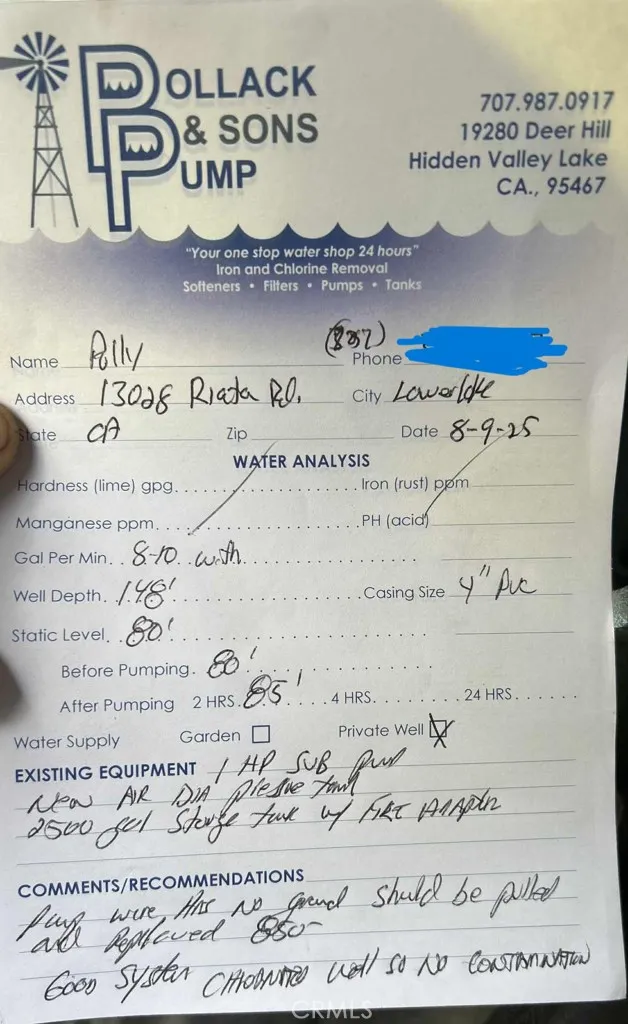 POLLACK
& SONS
PUMP
707.987.0917
19280 Deer Hill
Hidden Valley Lake
CA., 95467
"Your one stop water shop 24 hours"
Iron and Chlorine Removal
Softeners • Filters • Pumps • Tanks
Name Polly Phone
Address 13028 Riata Rd. City Lowerlake
State CA Zip Date 8-9-25
WATER ANALYSIS
Hardness (lime) gpg. Iron (rust) ppm
Manganese ppm. PH (acid)
Gal Per Min. 8-10 with
Well Depth. 148' Casing Size 4" PVC
Static Level. 80'
Before Pumping. 80'
After Pumping 2 HRS. 85' 4 HRS. 24 HRS.
Water Supply Garden Private Well X
EXISTING EQUIPMENT 1 HP SUB pump
New AIR DIA pressure tank
2500 gal Storage tank w/ FIRE Adapter
COMMENTS/RECOMMENDATIONS
Pump wire Has No ground should be pulled
and Replaced 850-
Good System CHlorinated well so No CONTAMINATION
CRMLS